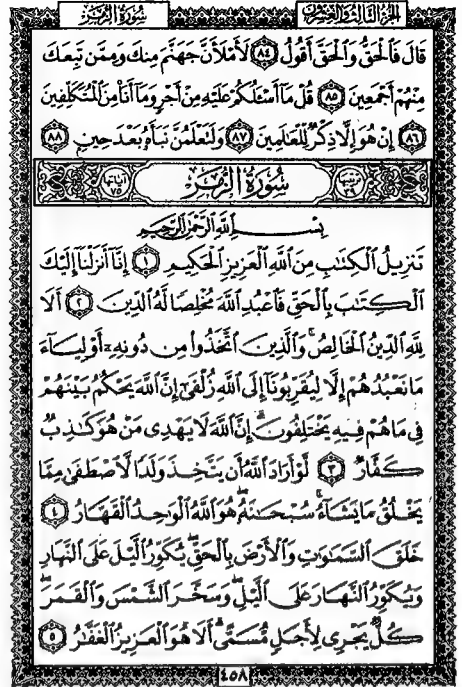 الجزء الثالث والعشرون
سُورَةُ الزُّمَرِ
قَالَ فَٱلْحَقُّ وَٱلْحَقَّ أَقُولُ ٨٤ لَأَمْلَأَنَّ جَهَنَّمَ مِنكَ وَمِمَّن تَبِعَكَ
مِنْهُمْ أَجْمَعِينَ ٨٥ قُلْ مَآ أَسْـَٔلُكُمْ عَلَيْهِ مِنْ أَجْرٍ وَمَآ أَنَا۠ مِنَ ٱلْمُتَكَلِّفِينَ
٨٦ إِنْ هُوَ إِلَّا ذِكْرٌ لِّلْعَـٰلَمِينَ ٨٧ وَلَتَعْلَمُنَّ نَبَأَهُۥ بَعْدَ حِينٍۭ ٨٨
ترتيبها ٣٩ سُورَةُ الزُّمَرِ آياتها ٧٥
بِسْمِ ٱللَّهِ ٱلرَّحْمَـٰنِ ٱلرَّحِيمِ
تَنزِيلُ ٱلْكِتَـٰبِ مِنَ ٱللَّهِ ٱلْعَزِيزِ ٱلْحَكِيمِ ١ إِنَّآ أَنزَلْنَآ إِلَيْكَ
ٱلْكِتَـٰبَ بِٱلْحَقِّ فَٱعْبُدِ ٱللَّهَ مُخْلِصًا لَّهُ ٱلدِّينَ ٢ أَلَا
لِلَّهِ ٱلدِّينُ ٱلْخَالِصُ ۚ وَٱلَّذِينَ ٱتَّخَذُوا۟ مِن دُونِهِۦٓ أَوْلِيَآءَ
مَا نَعْبُدُهُمْ إِلَّا لِيُقَرِّبُونَآ إِلَى ٱللَّهِ زُلْفَىٰٓ إِنَّ ٱللَّهَ يَحْكُمُ بَيْنَهُمْ
فِى مَا هُمْ فِيهِ يَخْتَلِفُونَ ۗ إِنَّ ٱللَّهَ لَا يَهْدِى مَنْ هُوَ كَـٰذِبٌ
كَفَّارٌ ٣ لَّوْ أَرَادَ ٱللَّهُ أَن يَتَّخِذَ وَلَدًا لَّٱصْطَفَىٰ مِمَّا
يَخْلُقُ مَا يَشَآءُ ۚ سُبْحَـٰنَهُۥ ۖ هُوَ ٱللَّهُ ٱلْوَٰحِدُ ٱلْقَهَّارُ ٤
خَلَقَ ٱلسَّمَـٰوَٰتِ وَٱلْأَرْضَ بِٱلْحَقِّ ۖ يُكَوِّرُ ٱلَّيْلَ عَلَى ٱلنَّهَارِ
وَيُكَوِّرُ ٱلنَّهَارَ عَلَى ٱلَّيْلِ ۖ وَسَخَّرَ ٱلشَّمْسَ وَٱلْقَمَرَ ۖ
كُلٌّ يَجْرِى لِأَجَلٍ مُّسَمًّى ۗ أَلَا هُوَ ٱلْعَزِيزُ ٱلْغَفَّـٰرُ ٥
٤٥٨